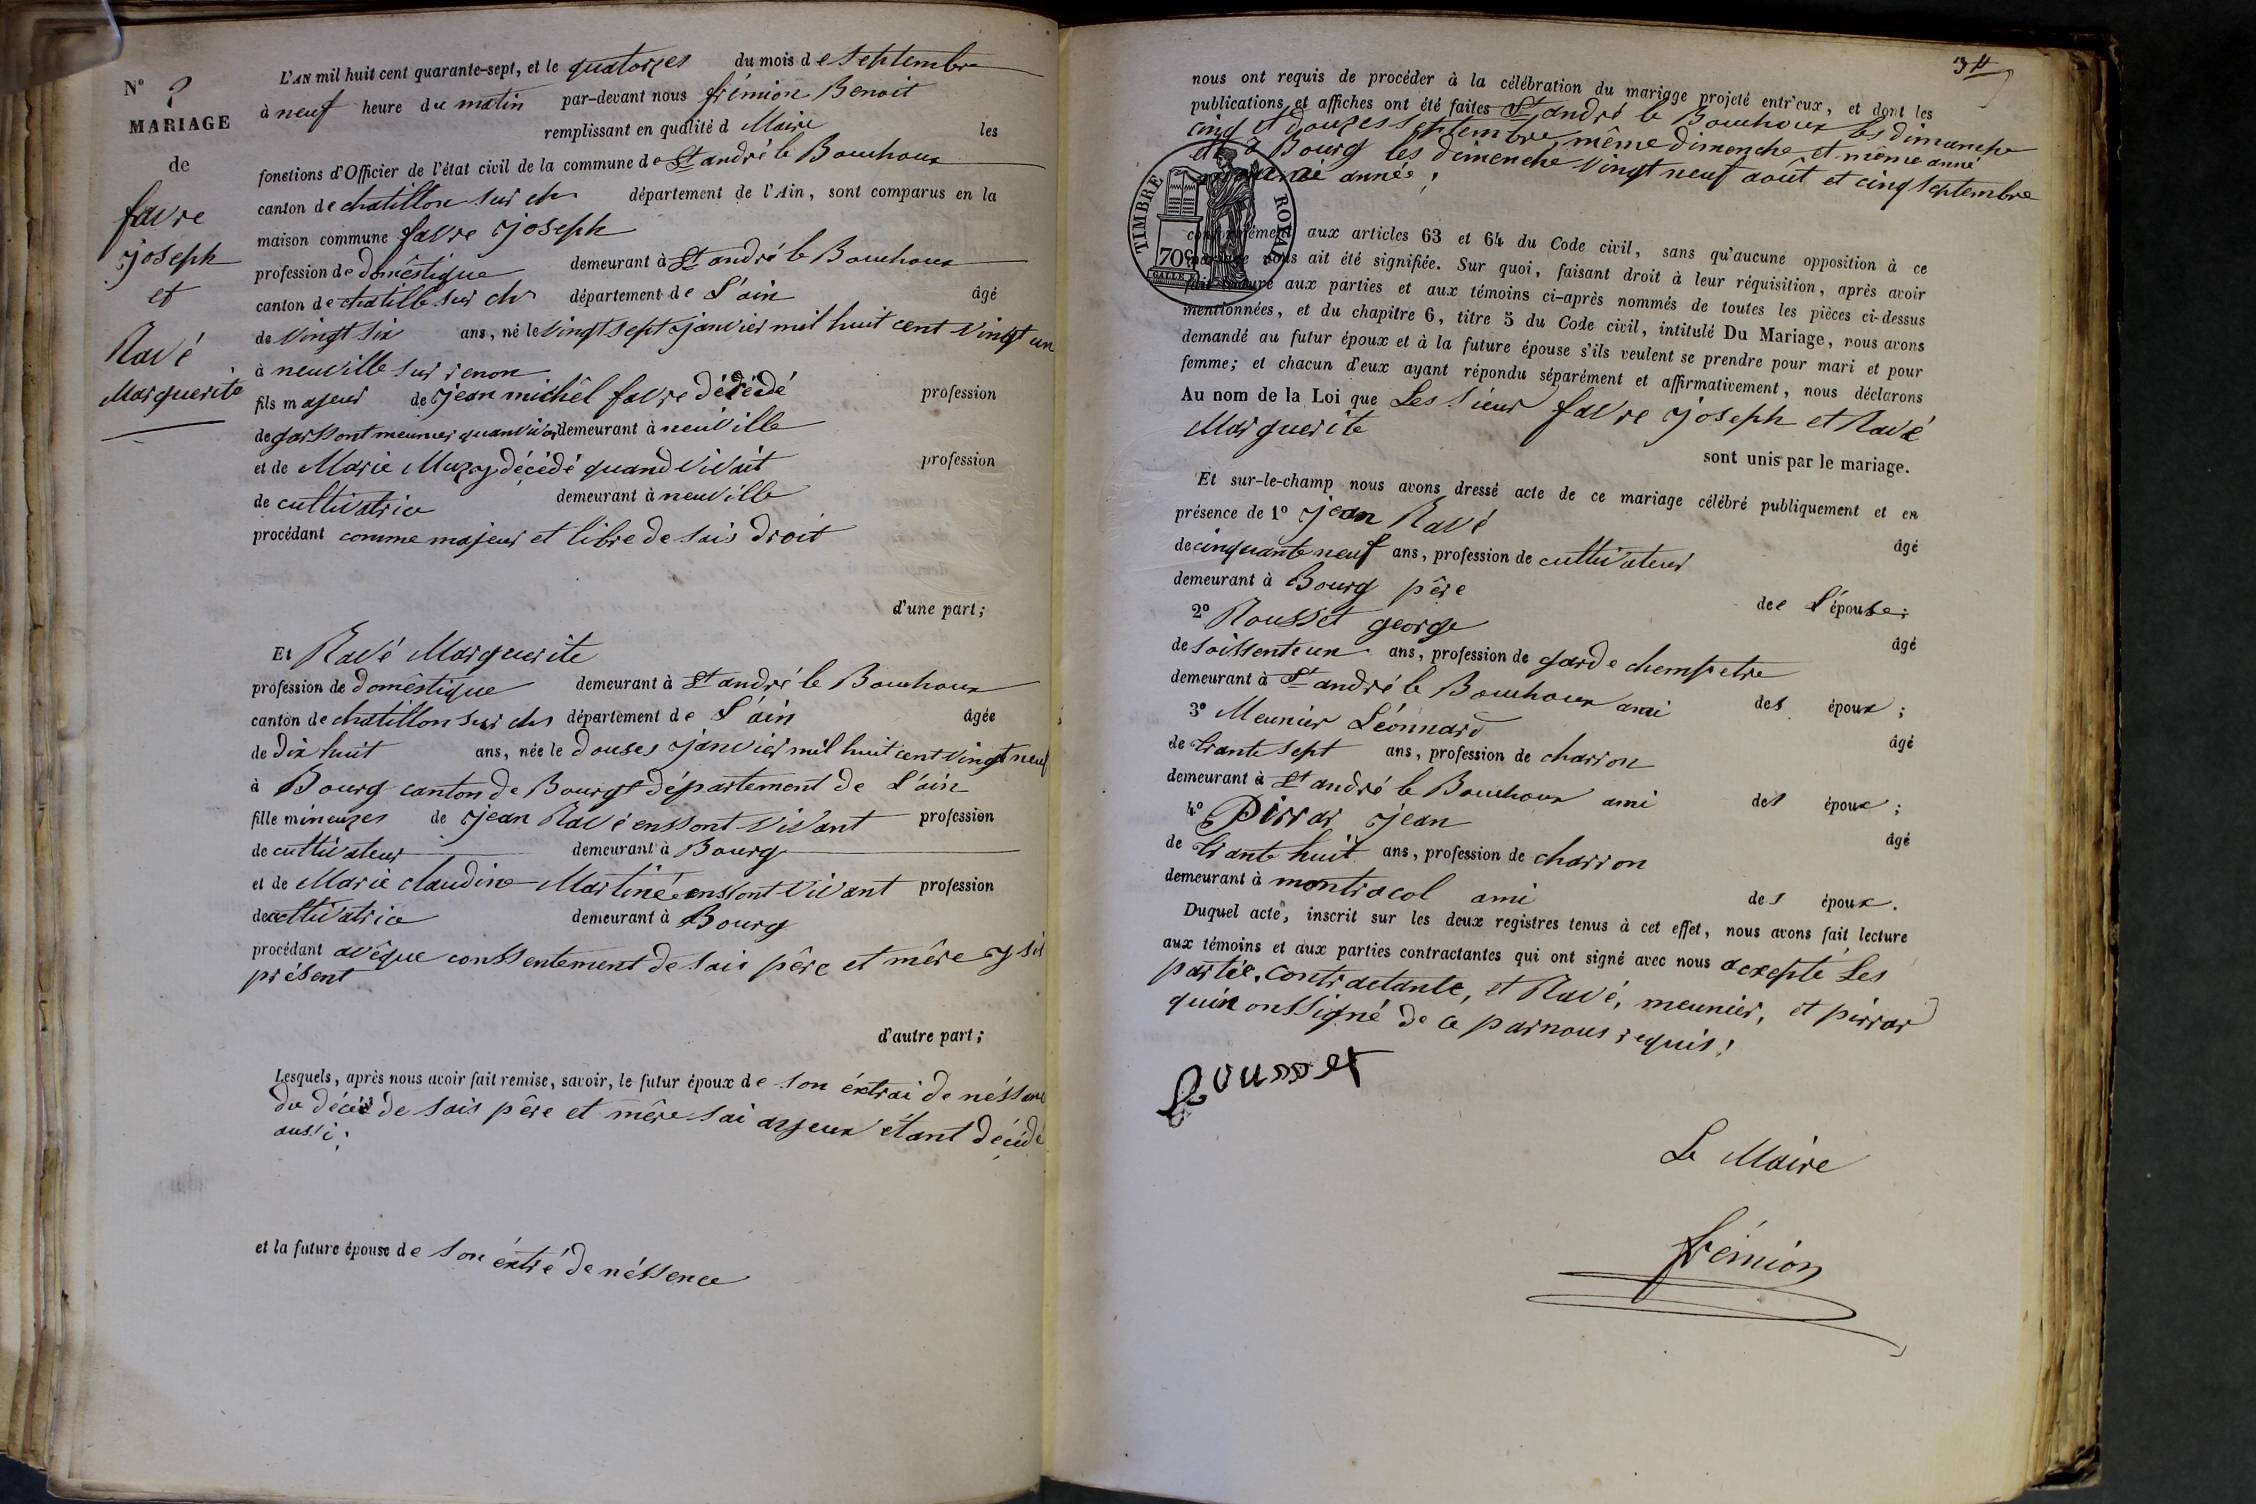 N° 2
MARIAGE
de
favre
joseph
et
Ravé
Marguerite
L'AN mil huit cent quarante-sept, et le quatorzes du mois de septembre
à neuf heure du matin par-devant nous frémion Benoit
remplissant en qualité d Maire les
fonctions d'Officier de l'état civil de la commune de St andré le Bouchoux
canton de chatillon sur ch département de l'Ain, sont comparus en la
maison commune favre joseph
profession de domêstique demeurant à St andré le Bouchoux
canton de chatille sur ch département de L'ain âgé
de vingt six ans, né le vingt sept janvier mil huit cent vingt un
à neuville sur renon
fils majeur de jean michêl favre décédé profession
de garssont meunier quanvivai demeurant à neuville
et de Marie Muzy décédé quand vivait profession
de cultivatrice demeurant à neuville
procédant comme majeur et libre de sais droit
d'une part;
Et Ravé Marguerite
profession de domêstique demeurant à St andré le Bouchoux
canton de chatillon sur ch département de L'ain âgée
de dix huit ans, née le douses janvier mil huit cent vingt neuf
à Bourg canton de Bourgt département de L'ain
fille mineuzes de jean Ravé enssont vivant profession
de cultivateur demeurant à Bourg
et de Marie claudine Martiné enssont vivant profession
de cultivatrice demeurant à Bourg
procédant avêque conssentement de sais pêre et mêre y sis
présent
d'autre part;
Lesquels, après nous avoir fait remise, savoir, le futur époux de son éxtrai de néssance
du décéd de sais pêre et mêre sai ayeux étant décédé
aussi;
et la future épouse de son éxtré de néssence
34
nous ont requis de procéder à la célébration du mariage projeté entr'eux, et dont les
publications et affiches ont été faites St andré le Bouchoux les dimanche
cinq et douzes septembre même dimenche et même anné
et à Bourg les dimenche vingt neuf août et cinq septembre
année;
TIMBRE ROYAL
70c
conformément aux articles 63 et 64 du Code civil, sans qu'aucune opposition à ce
mariage nous ait été signifiée. Sur quoi, faisant droit à leur réquisition, après avoir
fait lecture aux parties et aux témoins ci-après nommés de toutes les pièces ci-dessus
mentionnées, et du chapitre 6, titre 5 du Code civil, intitulé Du Mariage, nous avons
demandé au futur époux et à la future épouse s'ils veulent se prendre pour mari et pour
femme; et chacun d'eux ayant répondu séparément et affirmativement, nous déclarons
Au nom de la Loi que Les sieur favre joseph et Ravé
Marguerite
sont unis par le mariage.
Et sur-le-champ nous avons dressé acte de ce mariage célébré publiquement et en
présence de 1° jean Ravé
âgé
de cinquante neuf ans, profession de cultivateur
demeurant à Bourg pêre dee L'épouse;
2° Rousset george
âgé
de soissente un ans, profession de garde chempetre
demeurant à St andré le Bouchoux ami des époux;
3° Meunier Léonnard
âgé
de trante sept ans, profession de charron
demeurant à St andré le Bouchoux ami des époux;
4° Pirrar jean
âgé
de trante huit ans, profession de charron
demeurant à montracol ami des époux.
Duquel acte, inscrit sur les deux registres tenus à cet effet, nous avons fait lecture
aux témoins et aux parties contractantes qui ont signé avec nous acxepté Les
partée, contractante, et Ravé, meunier, et pirrar
quin onssigné de ce parnous requis!
Rousset
Le Maire
frémion